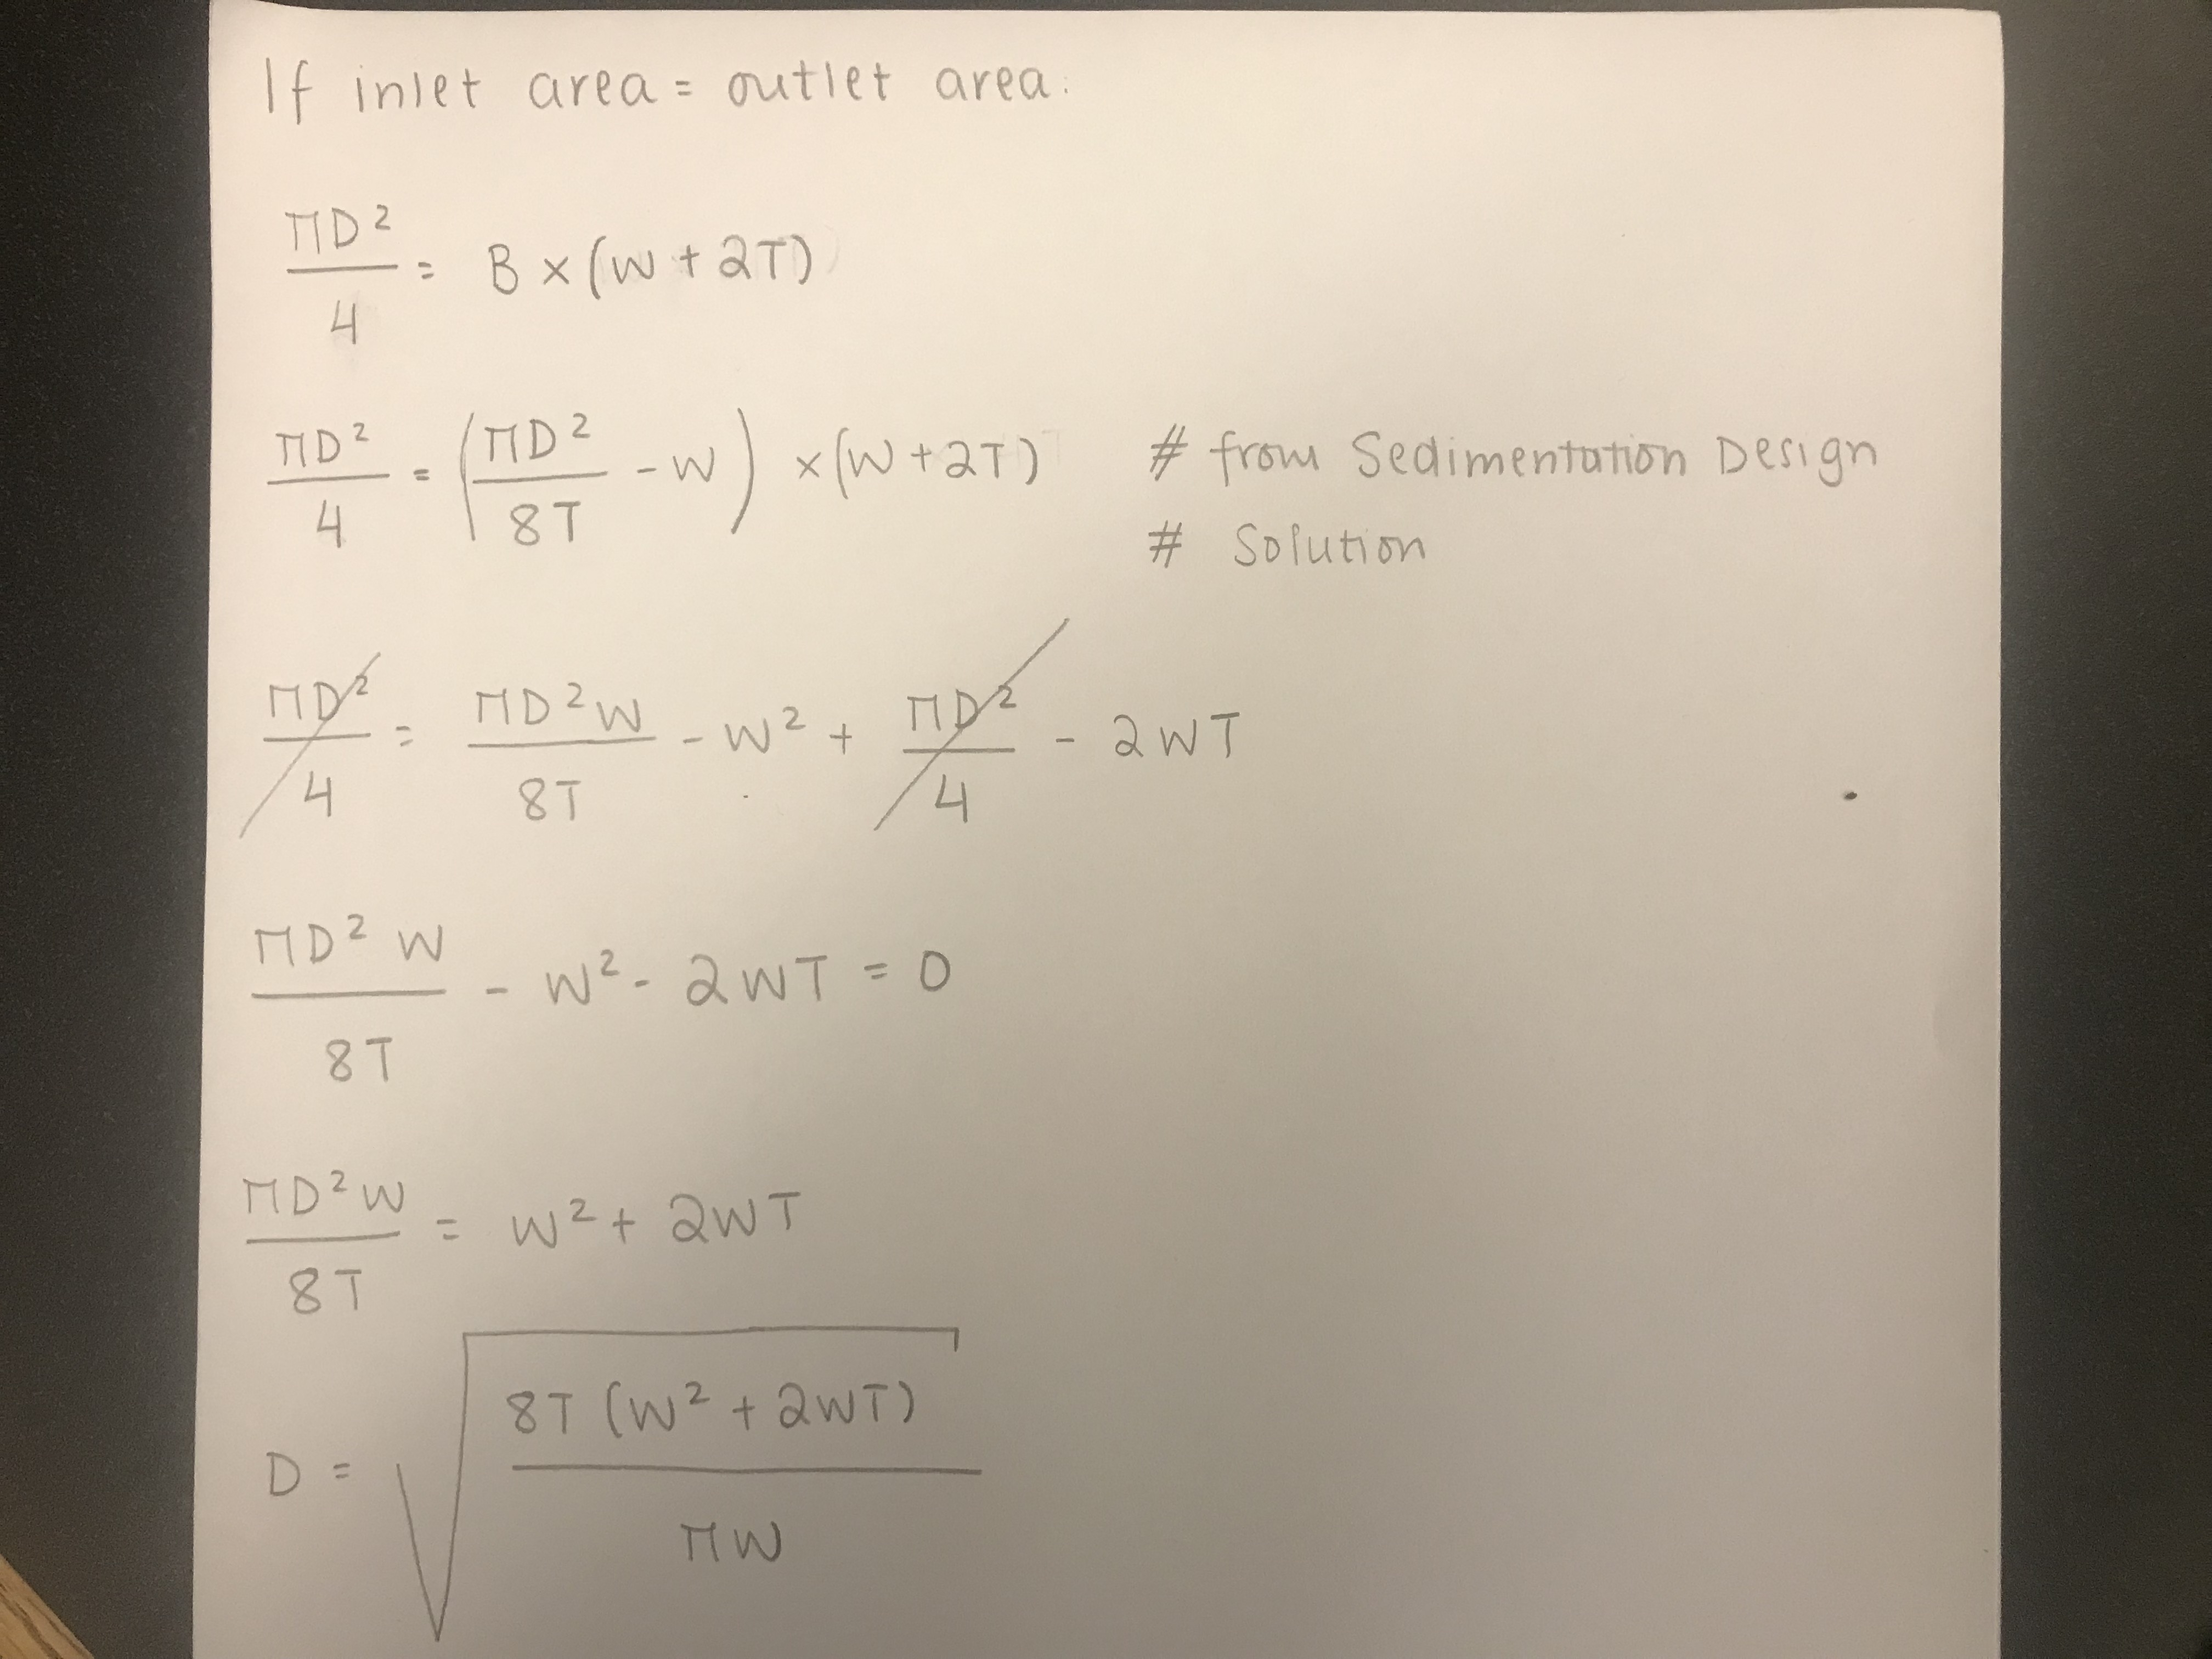 If inlet area = outlet area:
ΠD²/4 = B x (W + 2T)
ΠD²/4 = (ΠD²/8T - W) x (W + 2T) # from Sedimentation Design
# Solution
ΠD²/4 = ΠD²W/8T - W² + ΠD²/4 - 2WT
ΠD²W/8T - W² - 2WT = 0
ΠD²W/8T = W² + 2WT
D = √(8T (W² + 2WT)/ΠW)